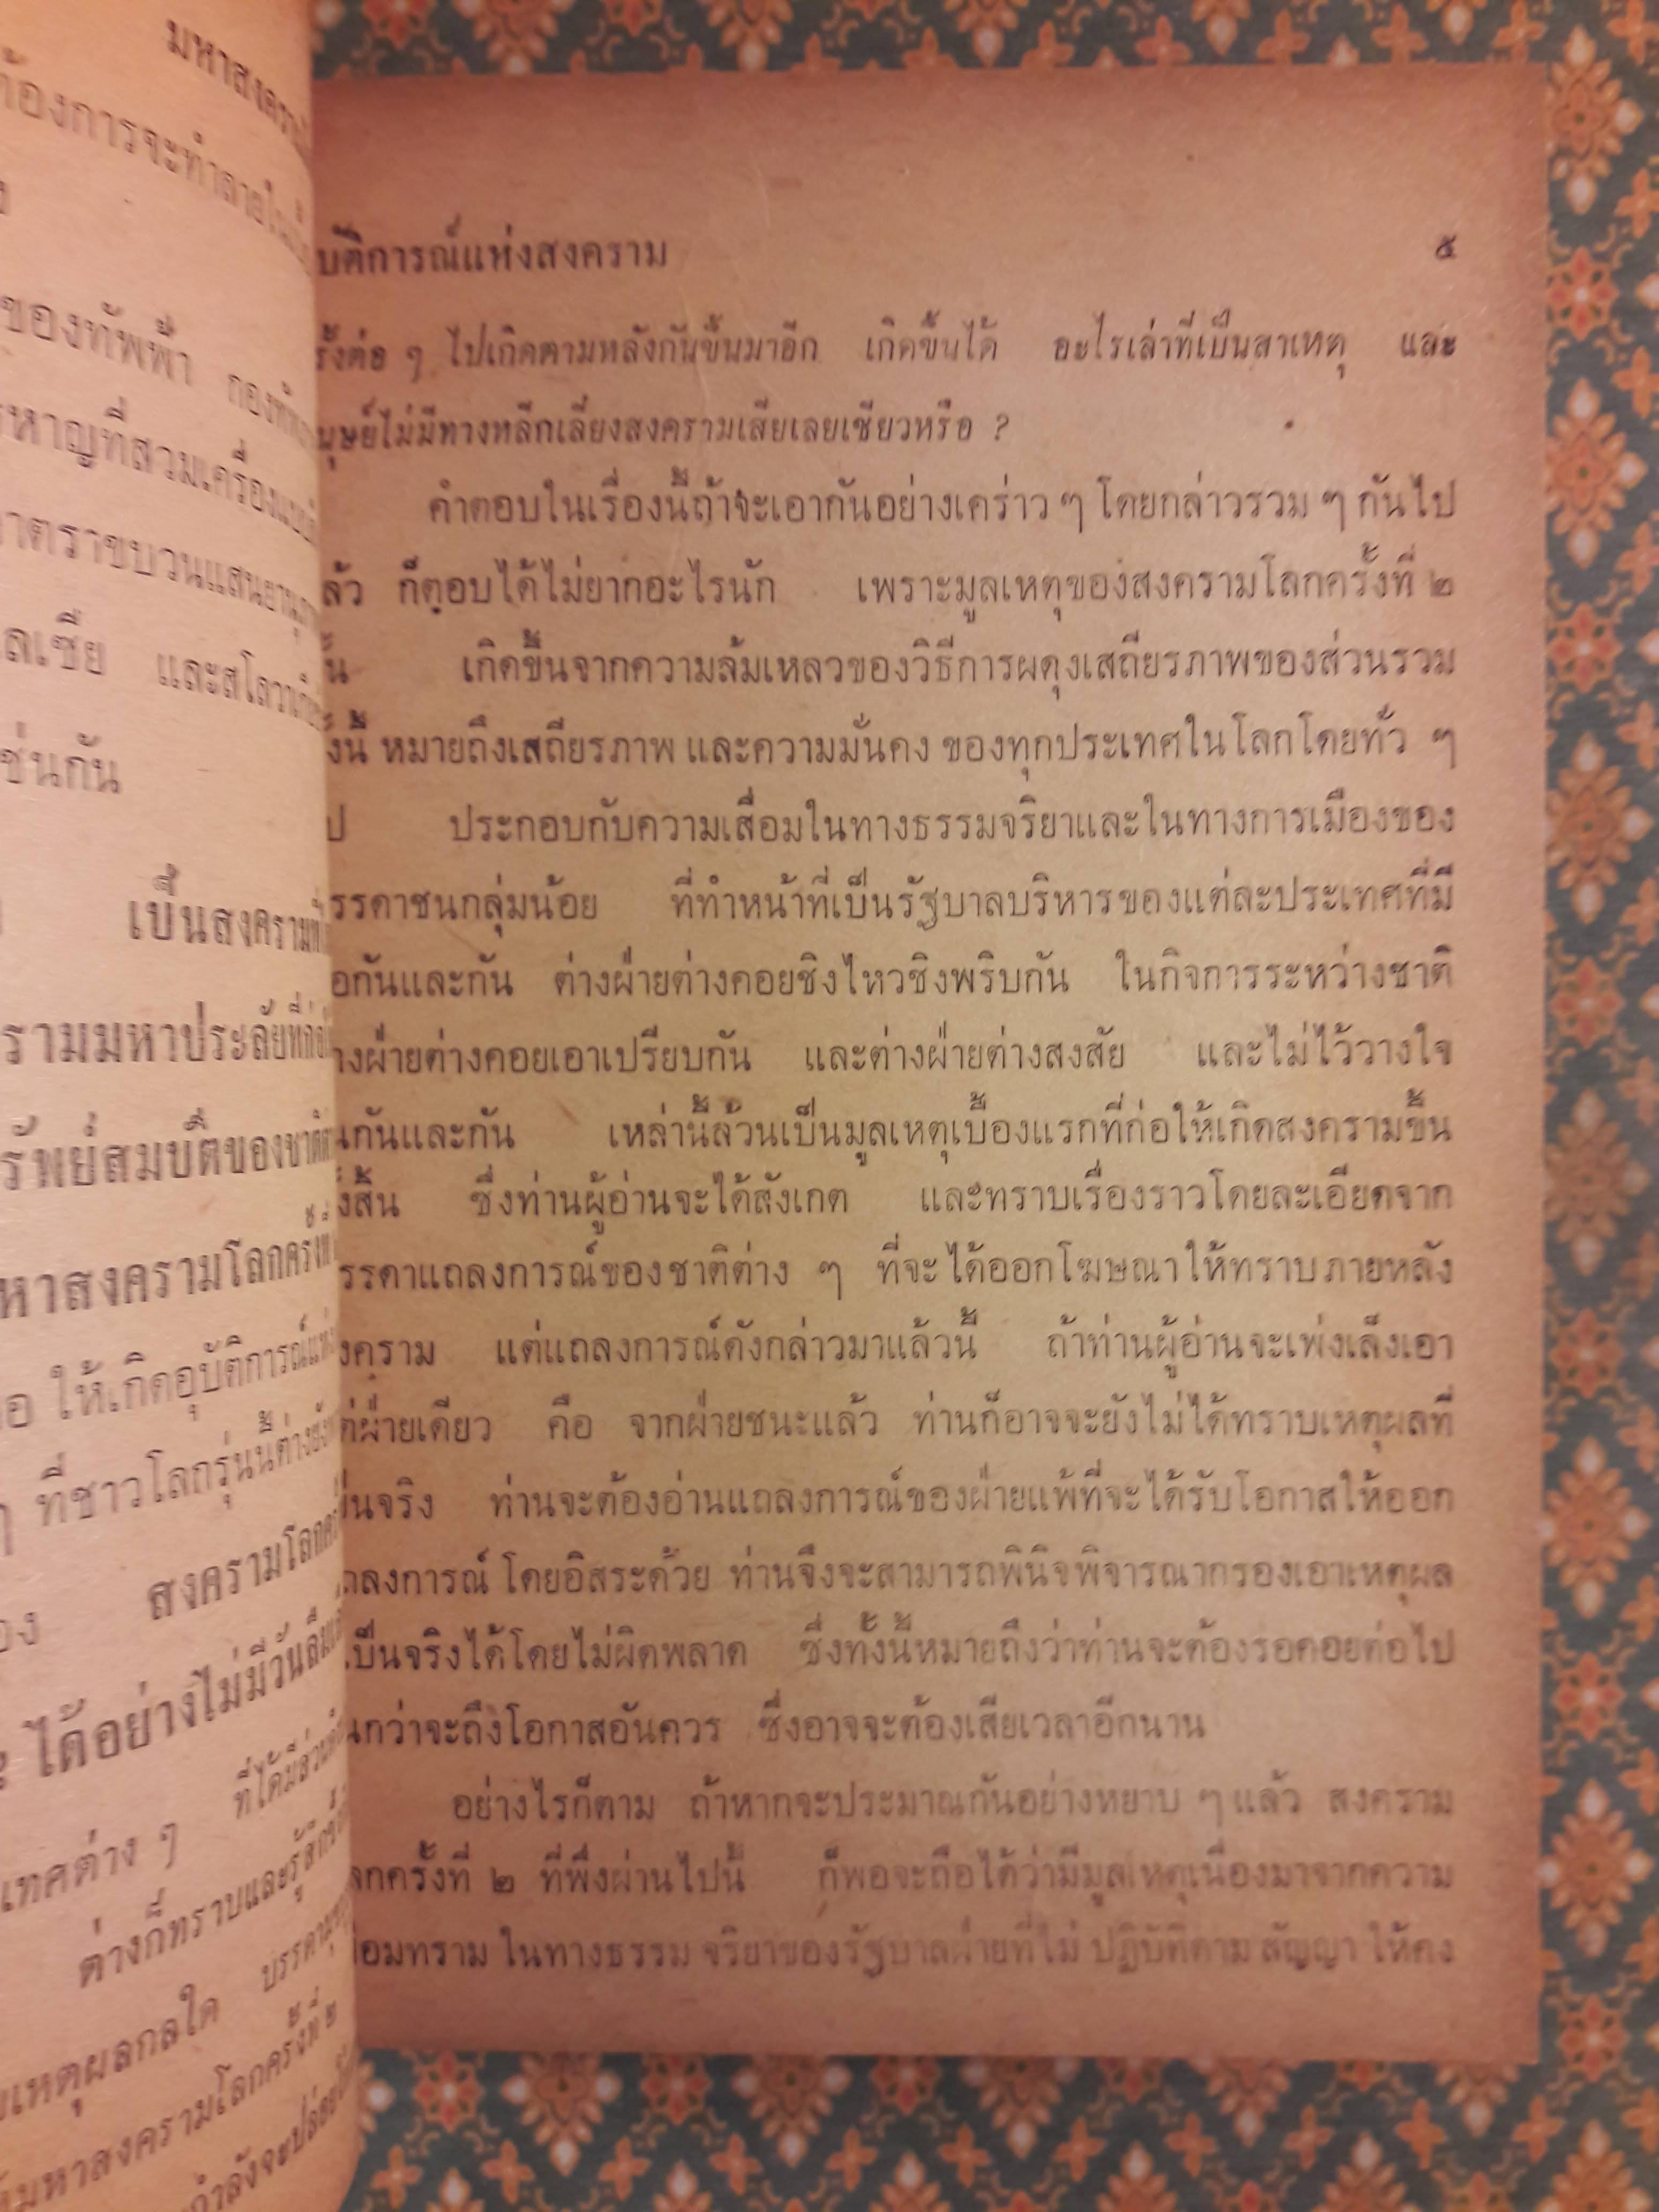 มหาสงคราม
ต้องการจะทำลาย
ของทัพฟ้า
หาญที่สวมเครื่องแบบ
ตราขบวนแสนยานุ
ลเซีย และสโลวาเกีย
ช่นกัน
เป็นสงครามที่
รามมหาประลัยที่ก่อ
รัพย์สมบัติของชาติ
หาสงครามโลกครั้งที่
อ ให้เกิดอุบัติการณ์แห่ง
ที่ชาวโลกรุ่นนี้ต่างยัง
อง สงครามโลก
ได้อย่างไม่มีวันลืม
ที่ได้มีส่วน
เทศต่าง ๆ
ต่างก็ทราบและรู้สึก
เหตุผลกลใด บรรดามนุ
มหาสงครามโลกครั้งที่ ๒
กำลังจะปล่อย
บัติการณ์แห่งสงคราม ๕
รั้งต่อ ๆ ไปเกิดตามหลังกันขึ้นมาอีก เกิดขึ้นได้ อะไรเล่าที่เป็นสาเหตุ และ
นุษย์ไม่มีทางหลีกเลี่ยงสงครามเสียเลยเชียวหรือ ?
คำตอบในเรื่องนี้ถ้าจะเอากันอย่างเคร่าว ๆ โดยกล่าวรวม ๆ กันไป
ล้ว ก็ตอบได้ไม่ยากอะไรนัก เพราะมูลเหตุของสงครามโลกครั้งที่ ๒
ั้น เกิดขึ้นจากความล้มเหลวของวิธีการผดุงเสถียรภาพของส่วนรวม
ั้งนี้ หมายถึงเสถียรภาพ และความมั่นคง ของทุกประเทศในโลกโดยทั่ว ๆ
ป ประกอบกับความเสื่อมในทางธรรมจริยาและในทางการเมืองของ
รรดาชนกลุ่มน้อย ที่ทำหน้าที่เป็นรัฐบาลบริหารของแต่ละประเทศที่มี
อกันและกัน ต่างฝ่ายต่างคอยชิงไหวชิงพริบกัน ในกิจการระหว่างชาติ
างฝ่ายต่างคอยเอาเปรียบกัน และต่างฝ่ายต่างสงสัย และไม่ไว้วางใจ
นกันและกัน เหล่านี้ล้วนเป็นมูลเหตุเบื้องแรกที่ก่อให้เกิดสงครามขึ้น
ั้งสิ้น ซึ่งท่านผู้อ่านจะได้สังเกต และทราบเรื่องราวโดยละเอียดจาก
รรดาแถลงการณ์ของชาติต่าง ๆ ที่จะได้ออกโฆษณาให้ทราบภายหลัง
งคราม แต่แถลงการณ์ดังกล่าวมาแล้วนี้ ถ้าท่านผู้อ่านจะเพ่งเล็งเอา
ต่ฝ่ายเดียว คือ จากฝ่ายชนะแล้ว ท่านก็อาจจะยังไม่ได้ทราบเหตุผลที่
ป็นจริง ท่านจะต้องอ่านแถลงการณ์ของฝ่ายแพ้ที่จะได้รับโอกาสให้ออก
ถลงการณ์ โดยอิสระด้วย ท่านจึงจะสามารถพินิจพิจารณากรองเอาเหตุผล
เป็นจริงได้โดยไม่ผิดพลาด ซึ่งทั้งนี้หมายถึงว่าท่านจะต้องรอคอยต่อไป
นกว่าจะถึงโอกาสอันควร ซึ่งอาจจะต้องเสียเวลาอีกนาน
อย่างไรก็ตาม ถ้าหากจะประมาณกันอย่างหยาบ ๆ แล้ว สงคราม
ลกครั้งที่ ๒ ที่พึ่งผ่านไปนี้ ก็พอจะถือได้ว่ามีมูลเหตุเนื่องมาจากความ
ื่อมทราม ในทางธรรม จริยาของรัฐบาลฝ่ายที่ไม่ ปฏิบัติตาม สัญญา ให้คง